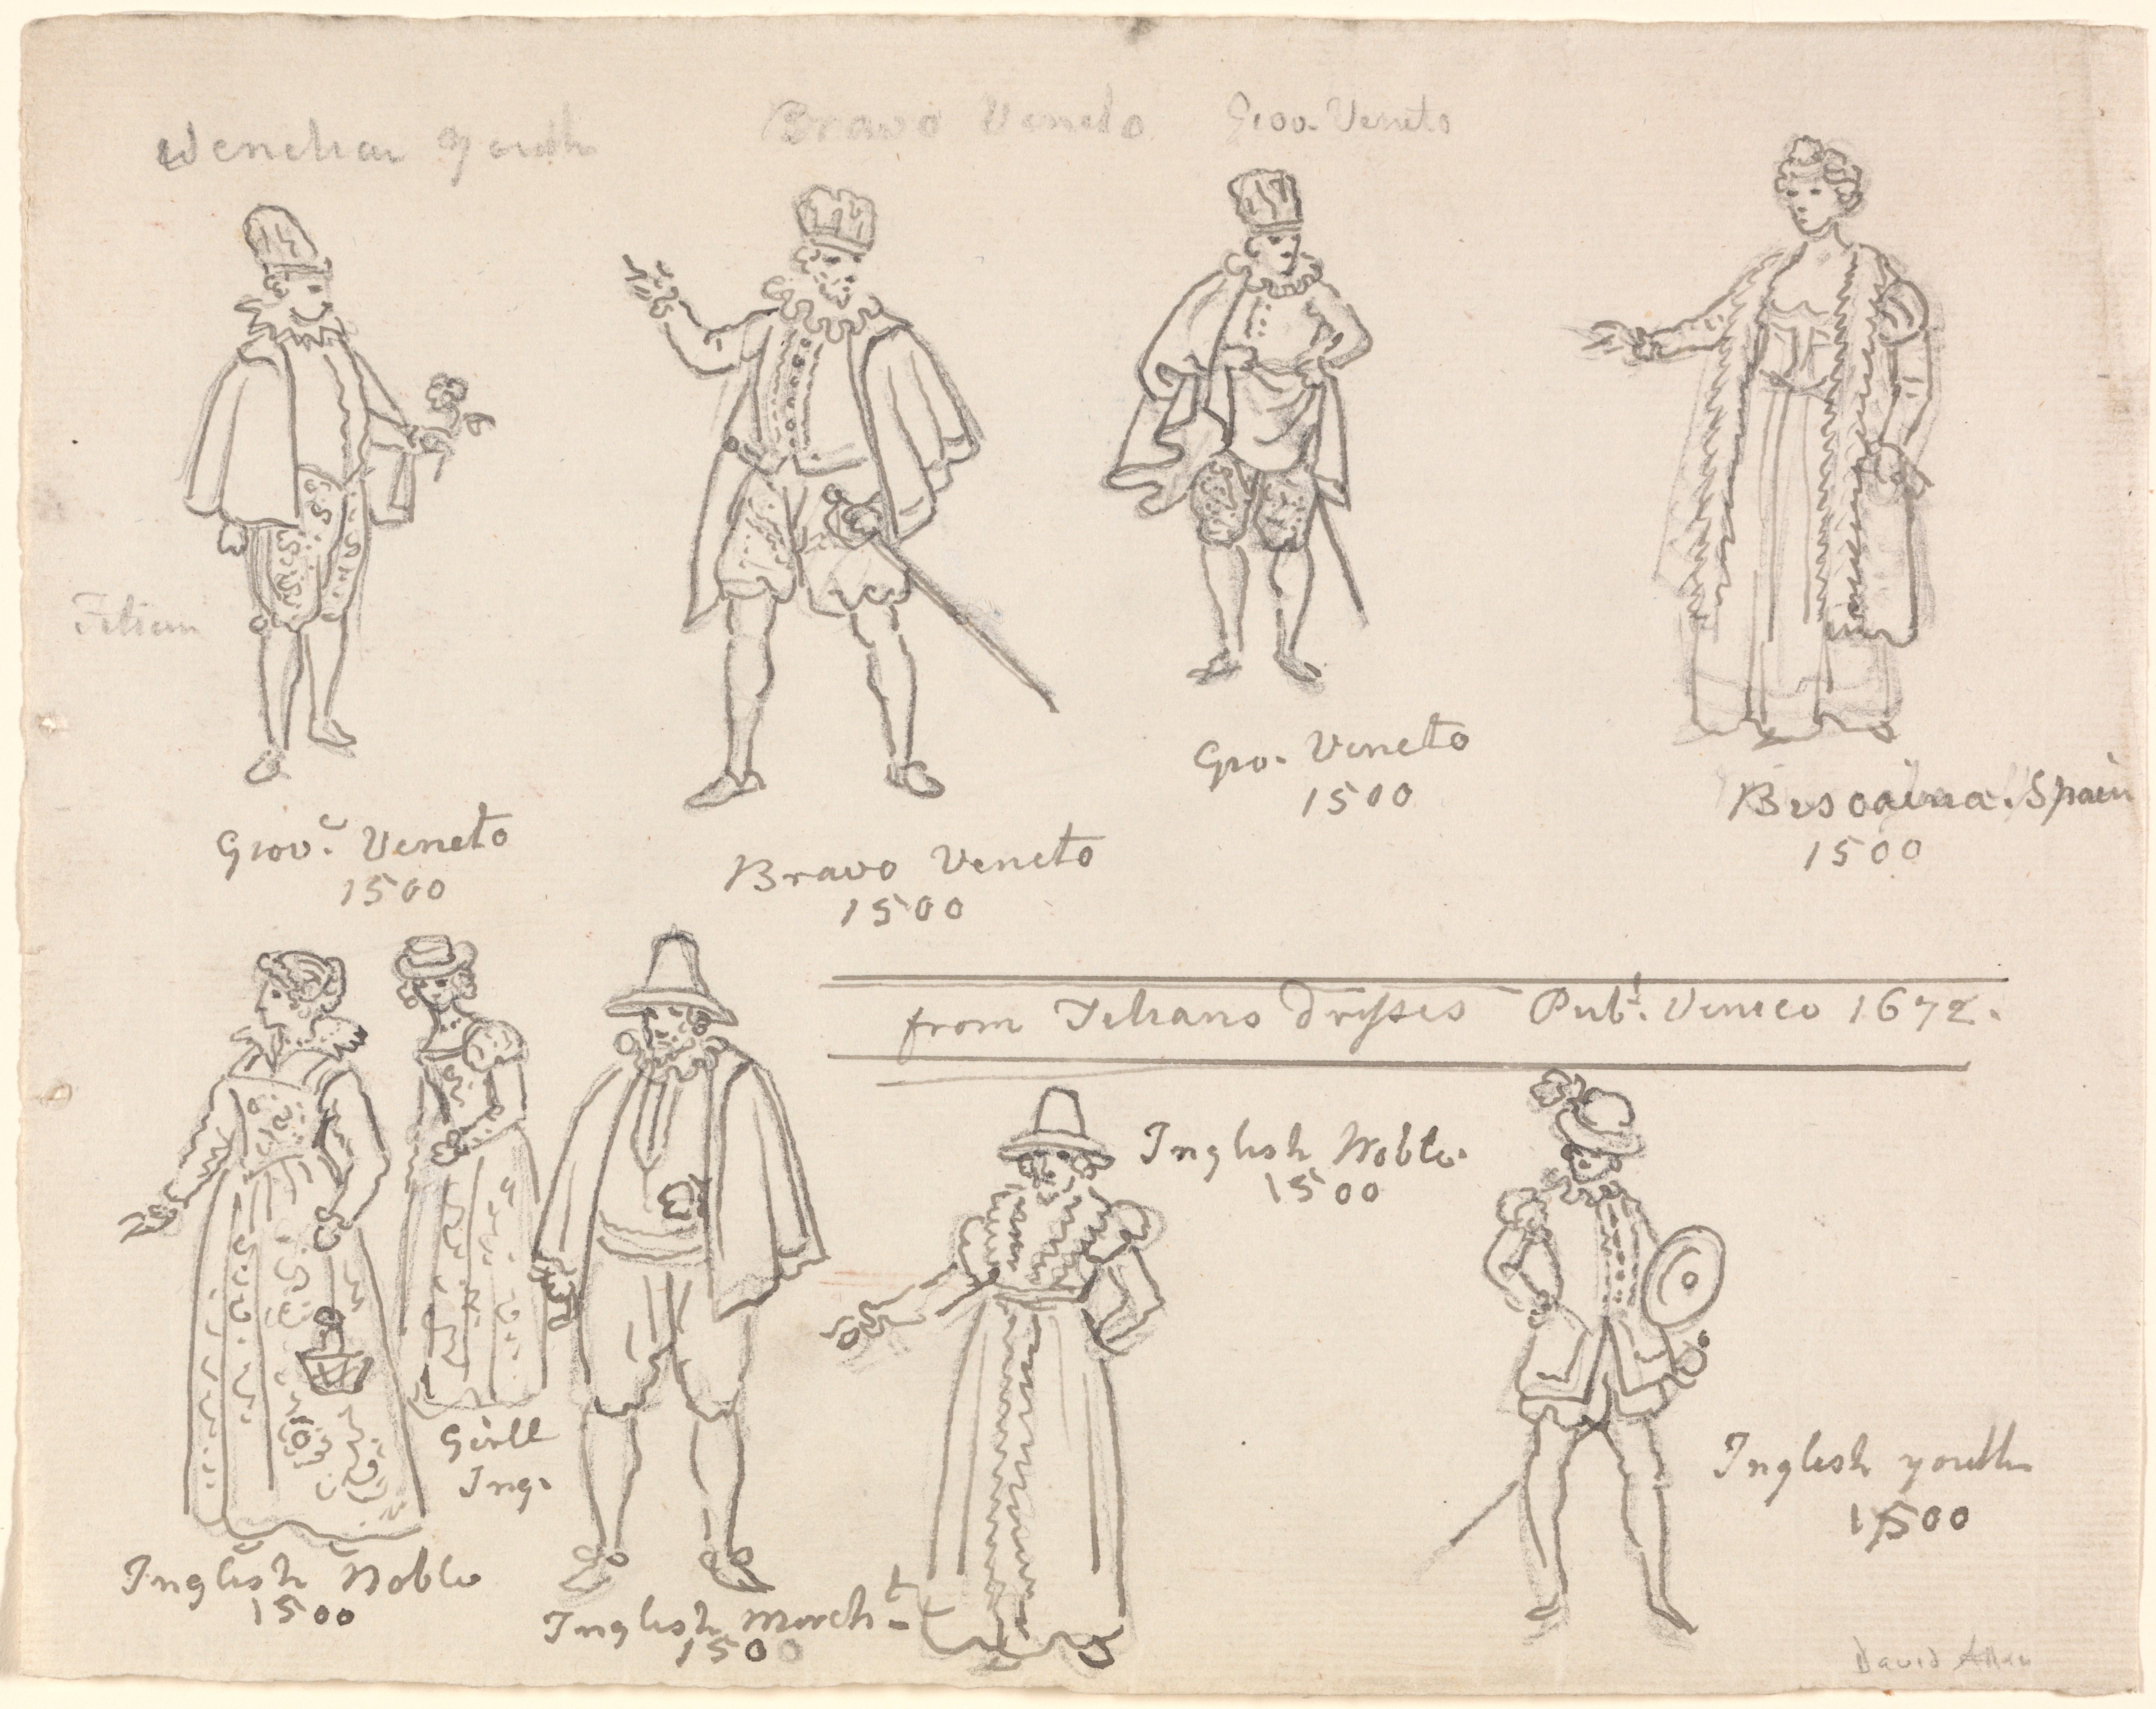 Venetian youth
Bravo Veneto
Giov. Veneto
Titian
Giov.e Veneto
1500
Bravo Veneto
1500
Gio. Veneto
1500
Biscaina. Spain
1500
from Titians Drysses Pub.d Venice 1672.
Inglish Noble.
1500
Inglish youth
1500
Girll
Ing.
Inglish Noble
1500
Inglish March.t
1500
David Allan